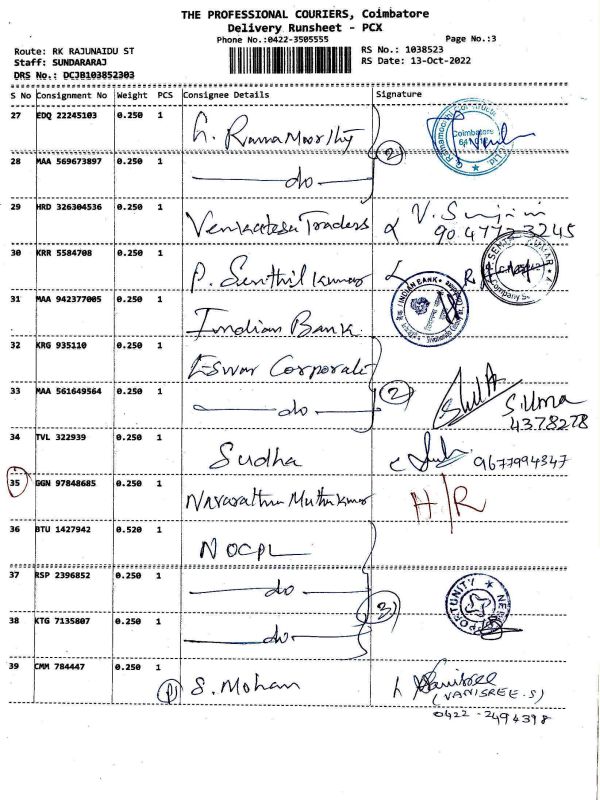 THE PROFESSIONAL COURIERS, Coimbatore
Delivery Runsheet - PCX
Phone No.:0422-3505555
Page No.:3
Route: RK RAJUNAIDU ST
RS No.: 1038523
Staff: SUNDARARAJ
RS Date: 13-Oct-2022
DRS No.: DCJB103852303
S No Consignment No Weight PCS Consignee Details Signature
27 EDQ 22245103 0.250 1
G. RamaMoorthy
Coimbatore
28 MAA 569673897 0.250 1
do
2
29 HRD 326304536 0.250 1
Venkatesa Traders
V.
90 47723245
30 KRR 5584708 0.250 1
P. Senthil kumar
31 MAA 942377005 0.250 1
Indian Bank
INDIAN BANK
32 KRG 935110 0.250 1
Eswar Corporati
33 MAA 561649564 0.250 1
do
2
S.Uma
4378278
34 TVL 322939 0.250 1
Sudha
9677994347
35 GGN 97848685 0.250 1
Navarathna Muthukumar
H/R
36 BTU 1427942 0.520 1
NOCPL
37 RSP 2396852 0.250 1
do
38 KTG 7135807 0.250 1
do
3
OPPORTUNITY
39 CMM 784447 0.250 1
P1
S. Mohan
Vanisree
(VANISREE.S)
0422-2494398